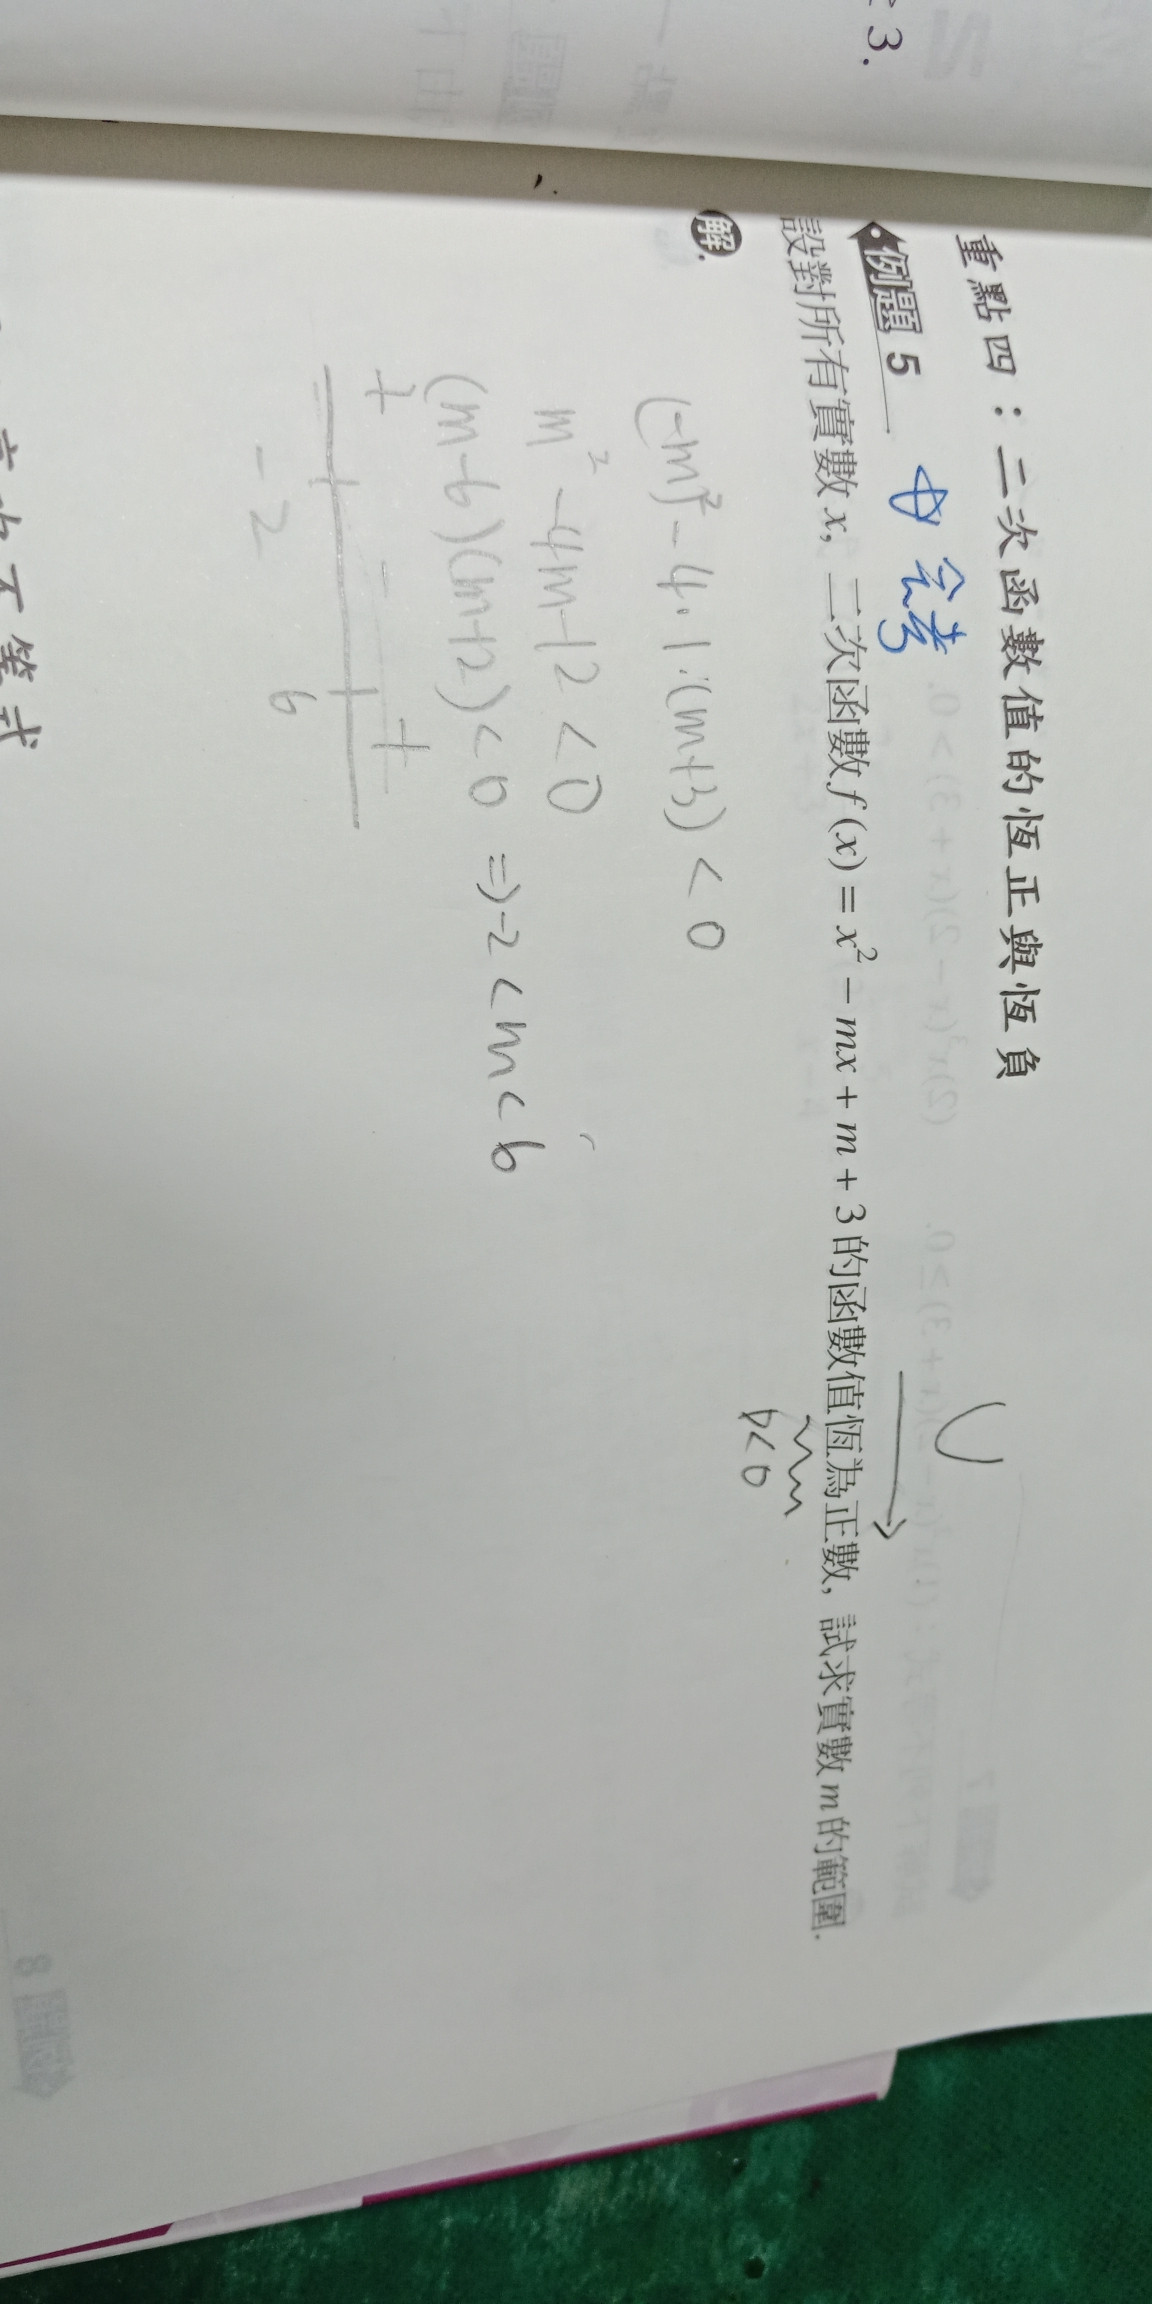 3.
重點四：二次函數值的恆正與恆負
例題 5 會考
設對所有實數 x, 二次函數 f(x) = x² − mx + m + 3 的函數值恆為正數, 試求實數 m 的範圍.
D<0
解
(-m)² - 4·1·(m+3) < 0
m² - 4m - 12 < 0
(m-6)(m+2) < 0 ⇒ -2 < m < 6
+ - +
-2 6